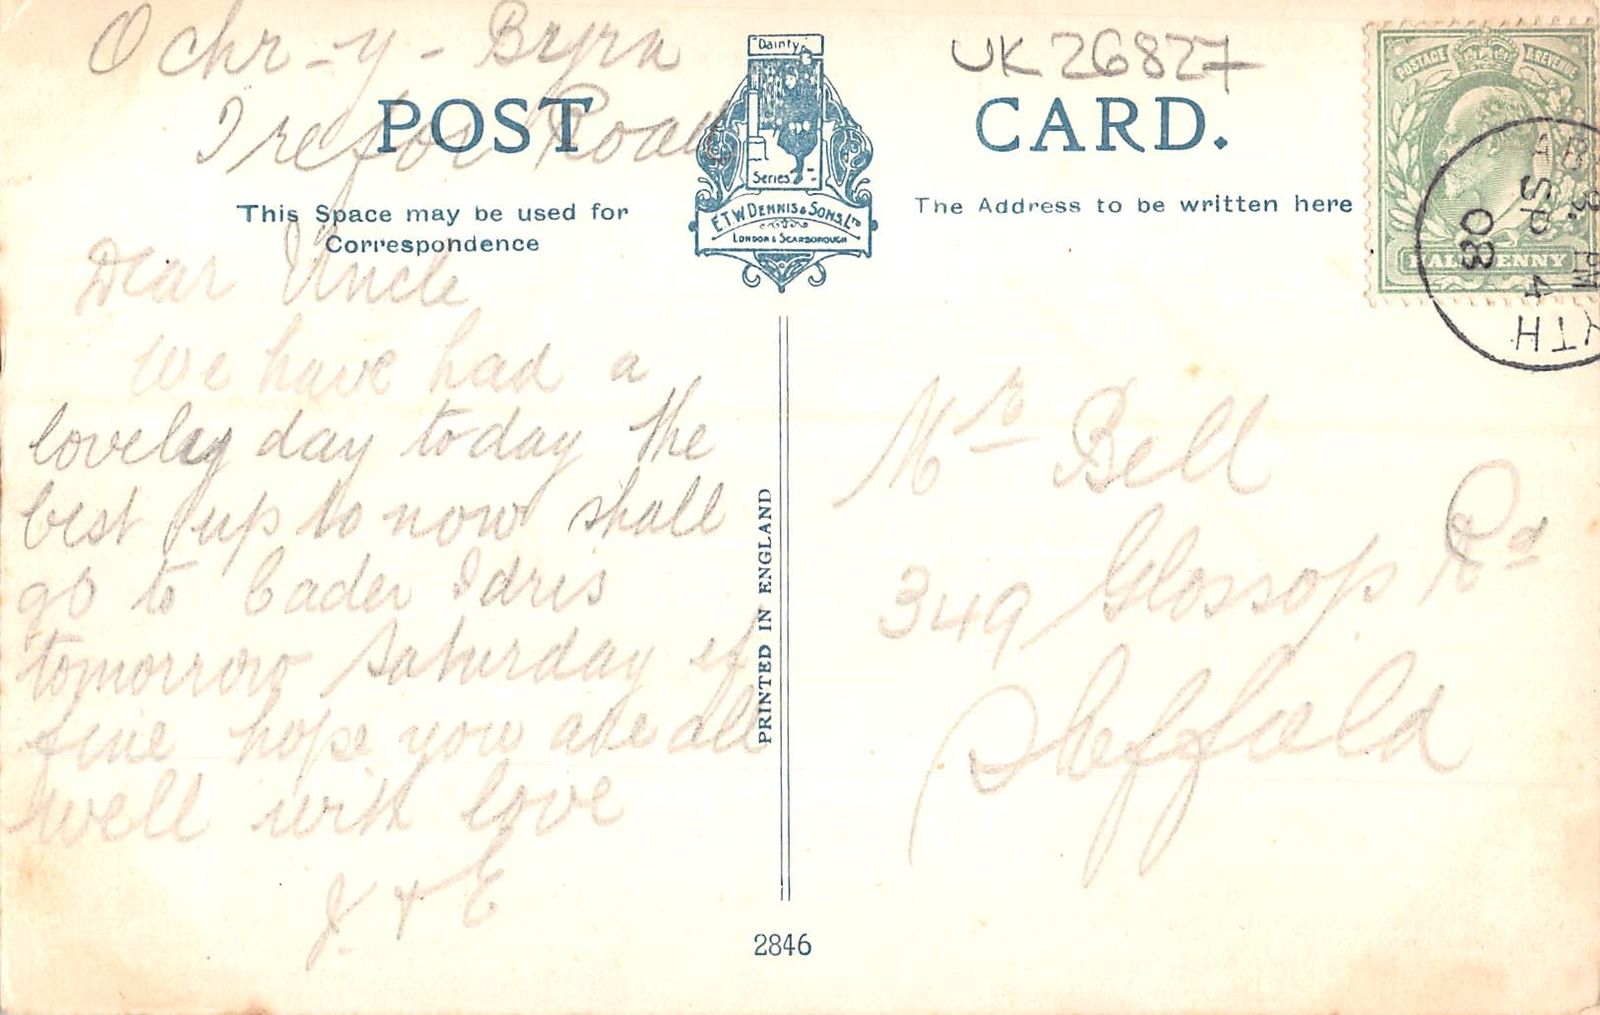 Ochr-y-Bryn
Trefor Road
UK 26827
POST CARD.
Dainty
Series
E.T.W. DENNIS & SONS, LTD
LONDON & SCARBOROUGH
This Space may be used for
Correspondence
The Address to be written here
POSTAGE & REVENUE
HALFPENNY
3. PM
SP 4
08
YTH
Dear Uncle
We have had a
lovely day today the
best up to now shall
go to Cader Idris
tomorrow Saturday if
fine hope you are all
well with love
J. + E
Mr Bell
349 Glossop Rd
Sheffield
PRINTED IN ENGLAND
2846